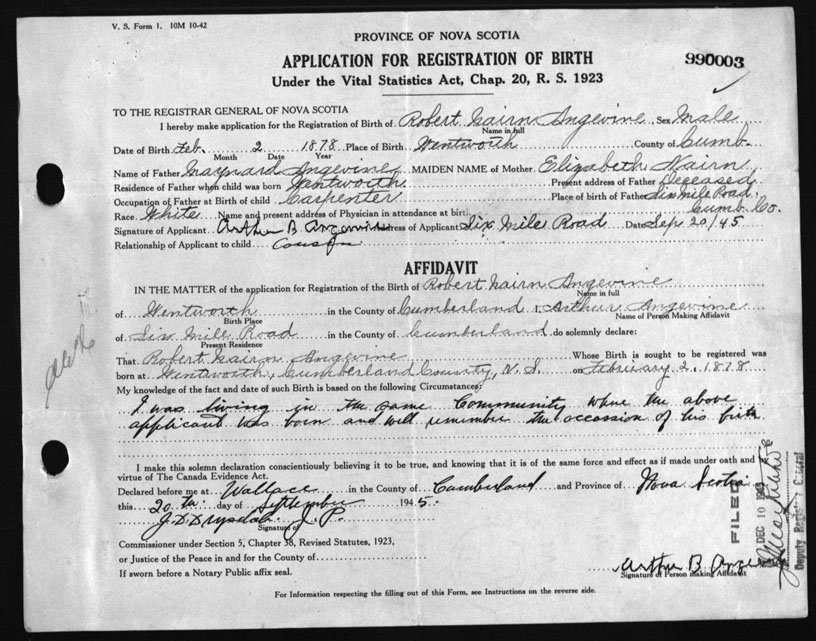 V. S. Form 1. 10M 10-42
PROVINCE OF NOVA SCOTIA
APPLICATION FOR REGISTRATION OF BIRTH
990003
Under the Vital Statistics Act, Chap. 20, R. S. 1923
TO THE REGISTRAR GENERAL OF NOVA SCOTIA
I hereby make application for the Registration of Birth of Robert Nairn Angevine Sex Male
Name in full
Date of Birth Feb. 2 1878 Place of Birth Wentworth County of Cumb.
Month Date Year
Name of Father Maynard Angevine MAIDEN NAME of Mother Elizabeth Nairn
Residence of Father when child was born Wentworth Present address of Father Deceased
Occupation of Father at Birth of child Carpenter Place of birth of Father Six Mile Road
Cumb. Co.
Race White Name and present address of Physician in attendance at birth
Signature of Applicant Arthur B Angevine Address of Applicant Six Mile Road Date Sep 20/45
Relationship of Applicant to child Cousin
AFFIDAVIT
IN THE MATTER of the application for Registration of the Birth of Robert Nairn Angevine
Name in full
of Wentworth in the County of Cumberland I, Arthur Angevine
Birth Place Name of Person Making Affidavit
of Six Mile Road in the County of Cumberland do solemnly declare:
Present Residence
That Robert Nairn Angevine Whose Birth is sought to be registered was
born at Wentworth, Cumberland County, N. S. on February 2, 1878
My knowledge of the fact and date of such Birth is based on the following Circumstances:
I was living in the same Community where the above
applicant was born and well remember the occassion of his birth
I make this solemn declaration conscientiously believing it to be true, and knowing that it is of the same force and effect as if made under oath and
virtue of The Canada Evidence Act.
Declared before me at Wallace in the County of Cumberland and Province of Nova Scotia
this 20th day of September 1945.
J. D. Drysdale J. P.
Signature of
Commissioner under Section 5, Chapter 38, Revised Statutes, 1923,
or Justice of the Peace in and for the County of
If sworn before a Notary Public affix seal.
Arthur B Ange
Signature of Person Making Affidavit
For Information respecting the filling out of this Form, see Instructions on the reverse side.
FILED
DEC 10
Deputy Registrar General